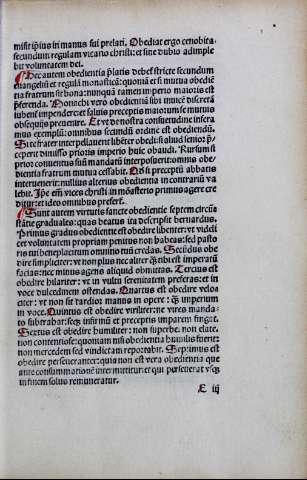 misit ipsius in manus sui prelati. Obediat ergo cenobita
secundum regulam vicario christi: et sine dubio adimple
bit voluntatem dei.
Hec autem obedientia p̄latis debet stricte secundum
euangeliū et regulā monasticā: quoniā etsi mutua obediē
tia fratrum sit bona: nunquā tamen imperio maioris est
p̄ferenda. Monachi vero obedientiā sibi inuicē discerā
iubent impendere: et saluis preceptis maiorum se mutuo
obsequiis preuenire. Et vt de nostra consuetudine insera
mus exemplū: omnibus secundū ordinē est obediendū.
Si te frater interpellauerit libēter obedi: si aliud senior p̄
ceperit dimisso prioris imperio huic obaudi. Rursum si
prior conuentus suū mandatū interposuerit: omnis obe-
dientia fratrum mutua cessabit. Qd si preceptū abbatis
interuenerit: nullius alterius obedientia in contrariū va
lebit. Ipse em̄ vices christi in mōasterio primus agere cre
ditur: et ideo omnibus prefert.
Sunt autem virtutis sancte obedientie septem circūs
stātie graduales: quas beatus ita describit bernardus.
Primus gradus obedientie est obedire libenter: vt viddi
cet voluntatem propriam penitus non habeas: sed pasto
ris tui beneplacitum omnino tuū credas. Secūdus obe
dire simpliciter: vt non plus nec aliter q̄ tibi est imperatū
facias: nec minus agens aliquid obmittas. Tercius est
obedire hilariter: vt in vultu serenitatem preferas: et in
voce dulcedinem ostendas. Quartus est obedire veloci
ter: vt non sit tardior manus in opere: q̄ imperium
in voce. Quintus est obedire viriliter: ne vires manda-
to subtrabar: seq̄ infirmū et preceptis imparem fingat.
Sextus est obedire humiliter: non superbe. non elate.
non contentiose: quoniam nisi obedientia humilis fuerit:
non mercedem sed vindictam reportabit. Septimus est
obedire perseueranter: quia non est vera obedientia que
ante consummationē intermittitur: et qui perseuerat vsq̄
in finem solus remuneratur.
E iij